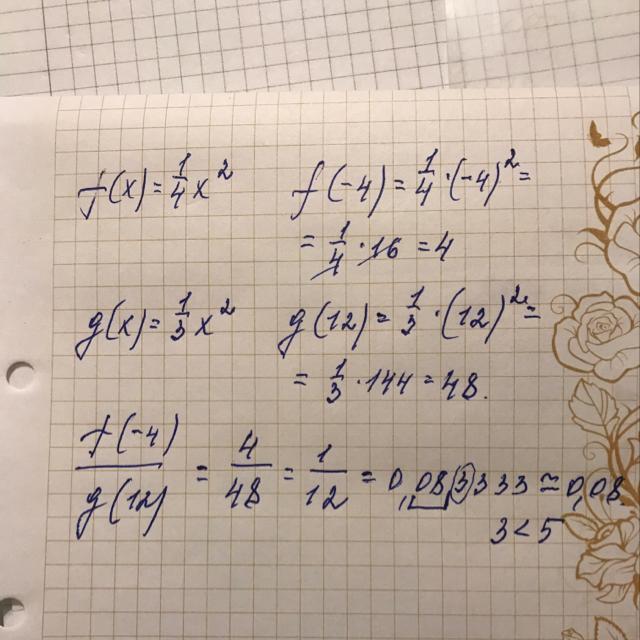 f(x) = 1/4 x² f(-4) = 1/4 · (-4)² =
= 1/4 · 16 = 4
g(x) = 1/3 x² g(12) = 1/3 · (12)² =
= 1/3 · 144 = 48.
f(-4)/g(12) = 4/48 = 1/12 = 0,083333 ≅ 0,08.
3 < 5